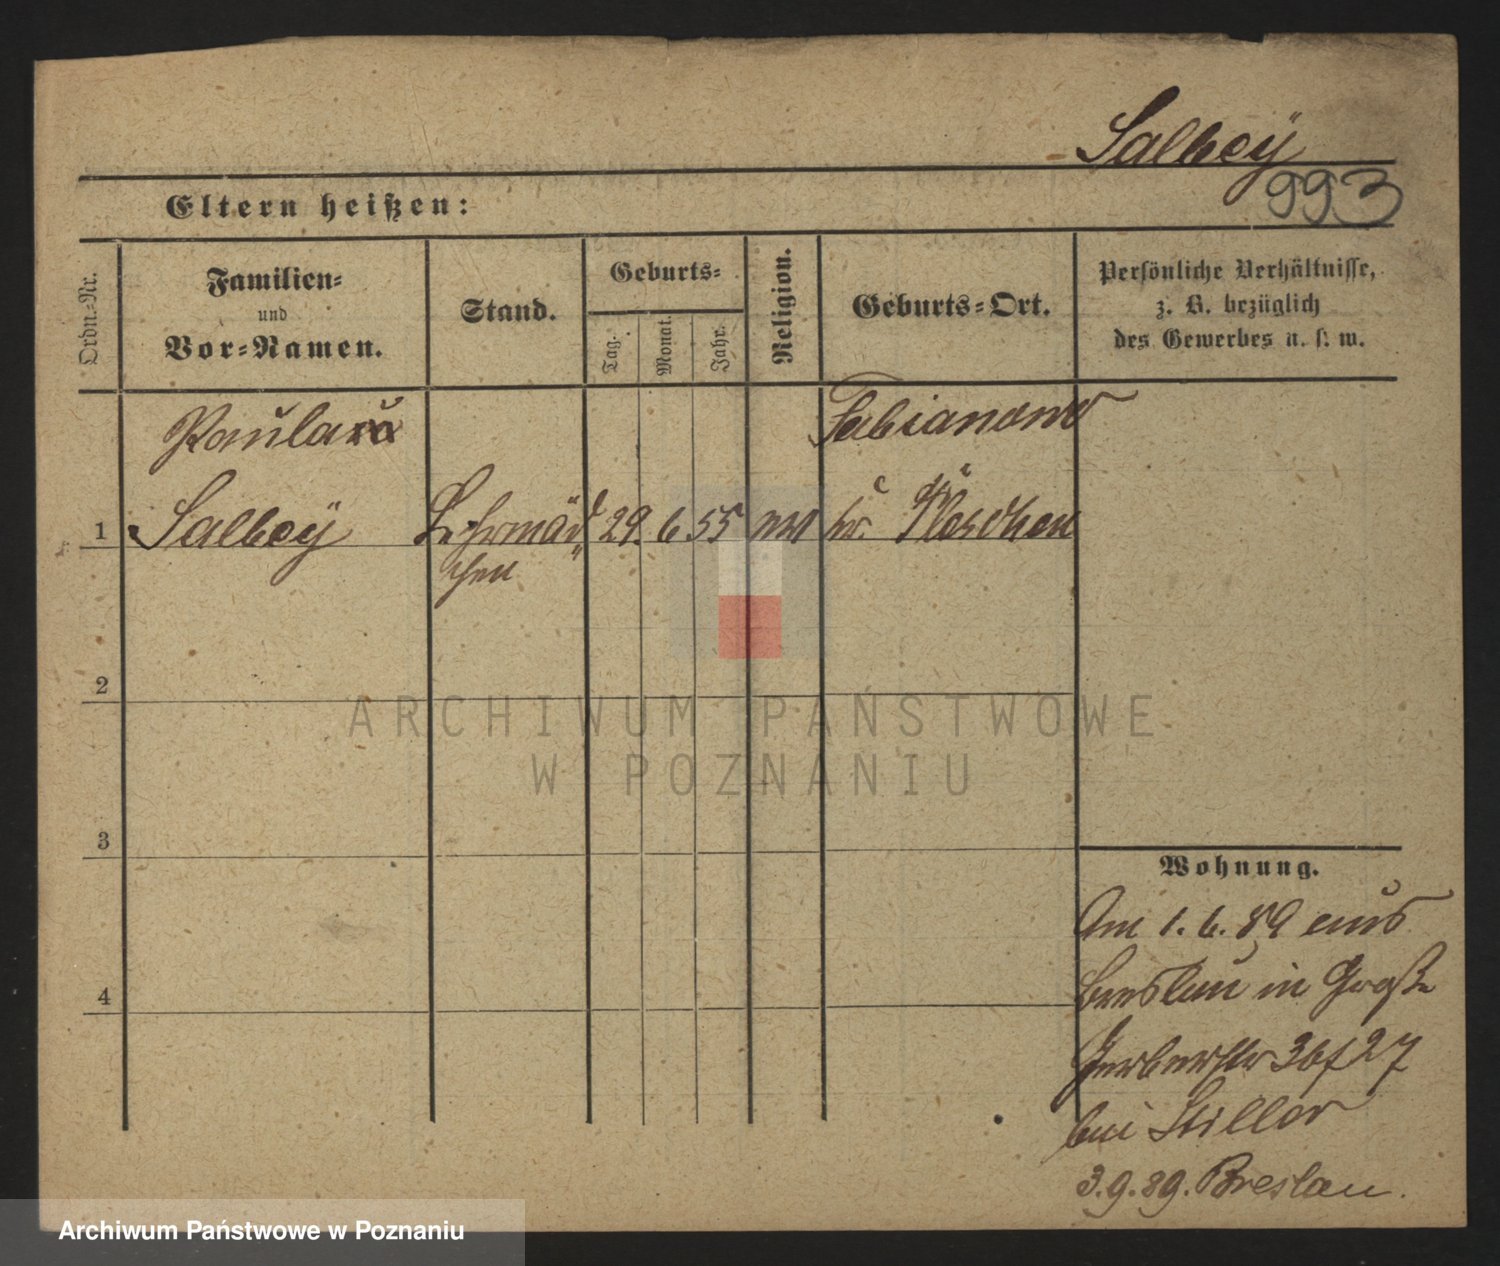 Salbeÿ
993
Eltern heißen:
Ordn.-Nr.
Familien-
und
Vor-Namen.
Stand.
Geburts-
Tag.
Monat.
Jahr.
Religion.
Geburts-Ort.
Persönliche Verhältnisse,
z. B. bezüglich
des Gewerbes u. s. w.
Paula
Fabianowo
1 Salbeÿ 29. 6 55 Kr. Pleschen
chen
2
ARCHIWUM PAŃSTWOWE
W POZNANIU
3
Wohnung.
Am 1. 6. 89 aus
4
Breslau in Große
Gerberstr 36 f 27
bei Stiller
3. 9. 89. Breslau.
Archiwum Państwowe w Poznaniu